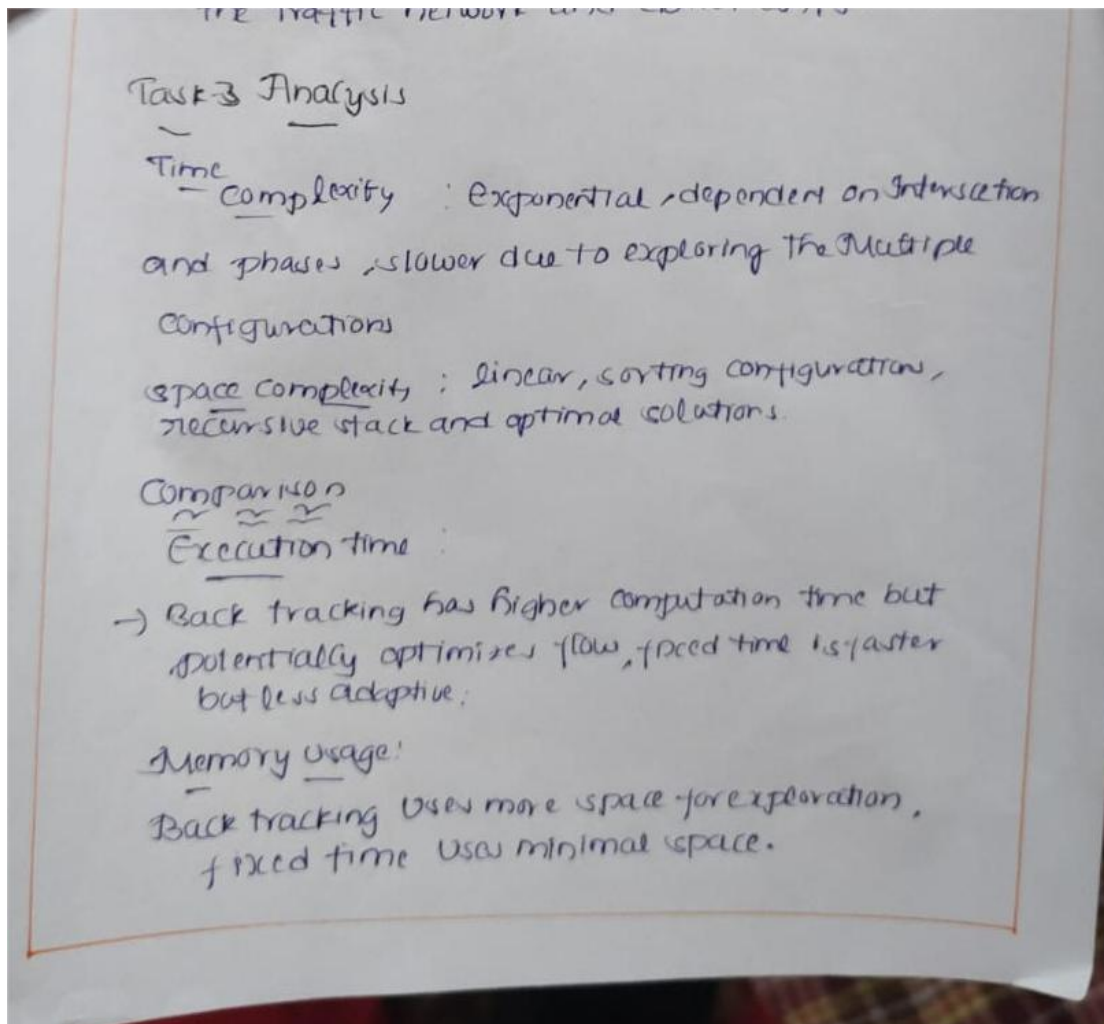 the Traffic network and
Task-3 Analysis
Time
complexity : exponential, dependent on Intersection
and phases, slower due to exploring the Multiple
configurations
space complexity : linear, sorting configuration,
recursive stack and optimal solutions.
Comparison
Execution time :
→ Back tracking has higher computation time but
potentially optimizes flow, fixed time is faster
but less adaptive.
Memory usage:
Back tracking uses more space for exploration,
fixed time uses minimal space.